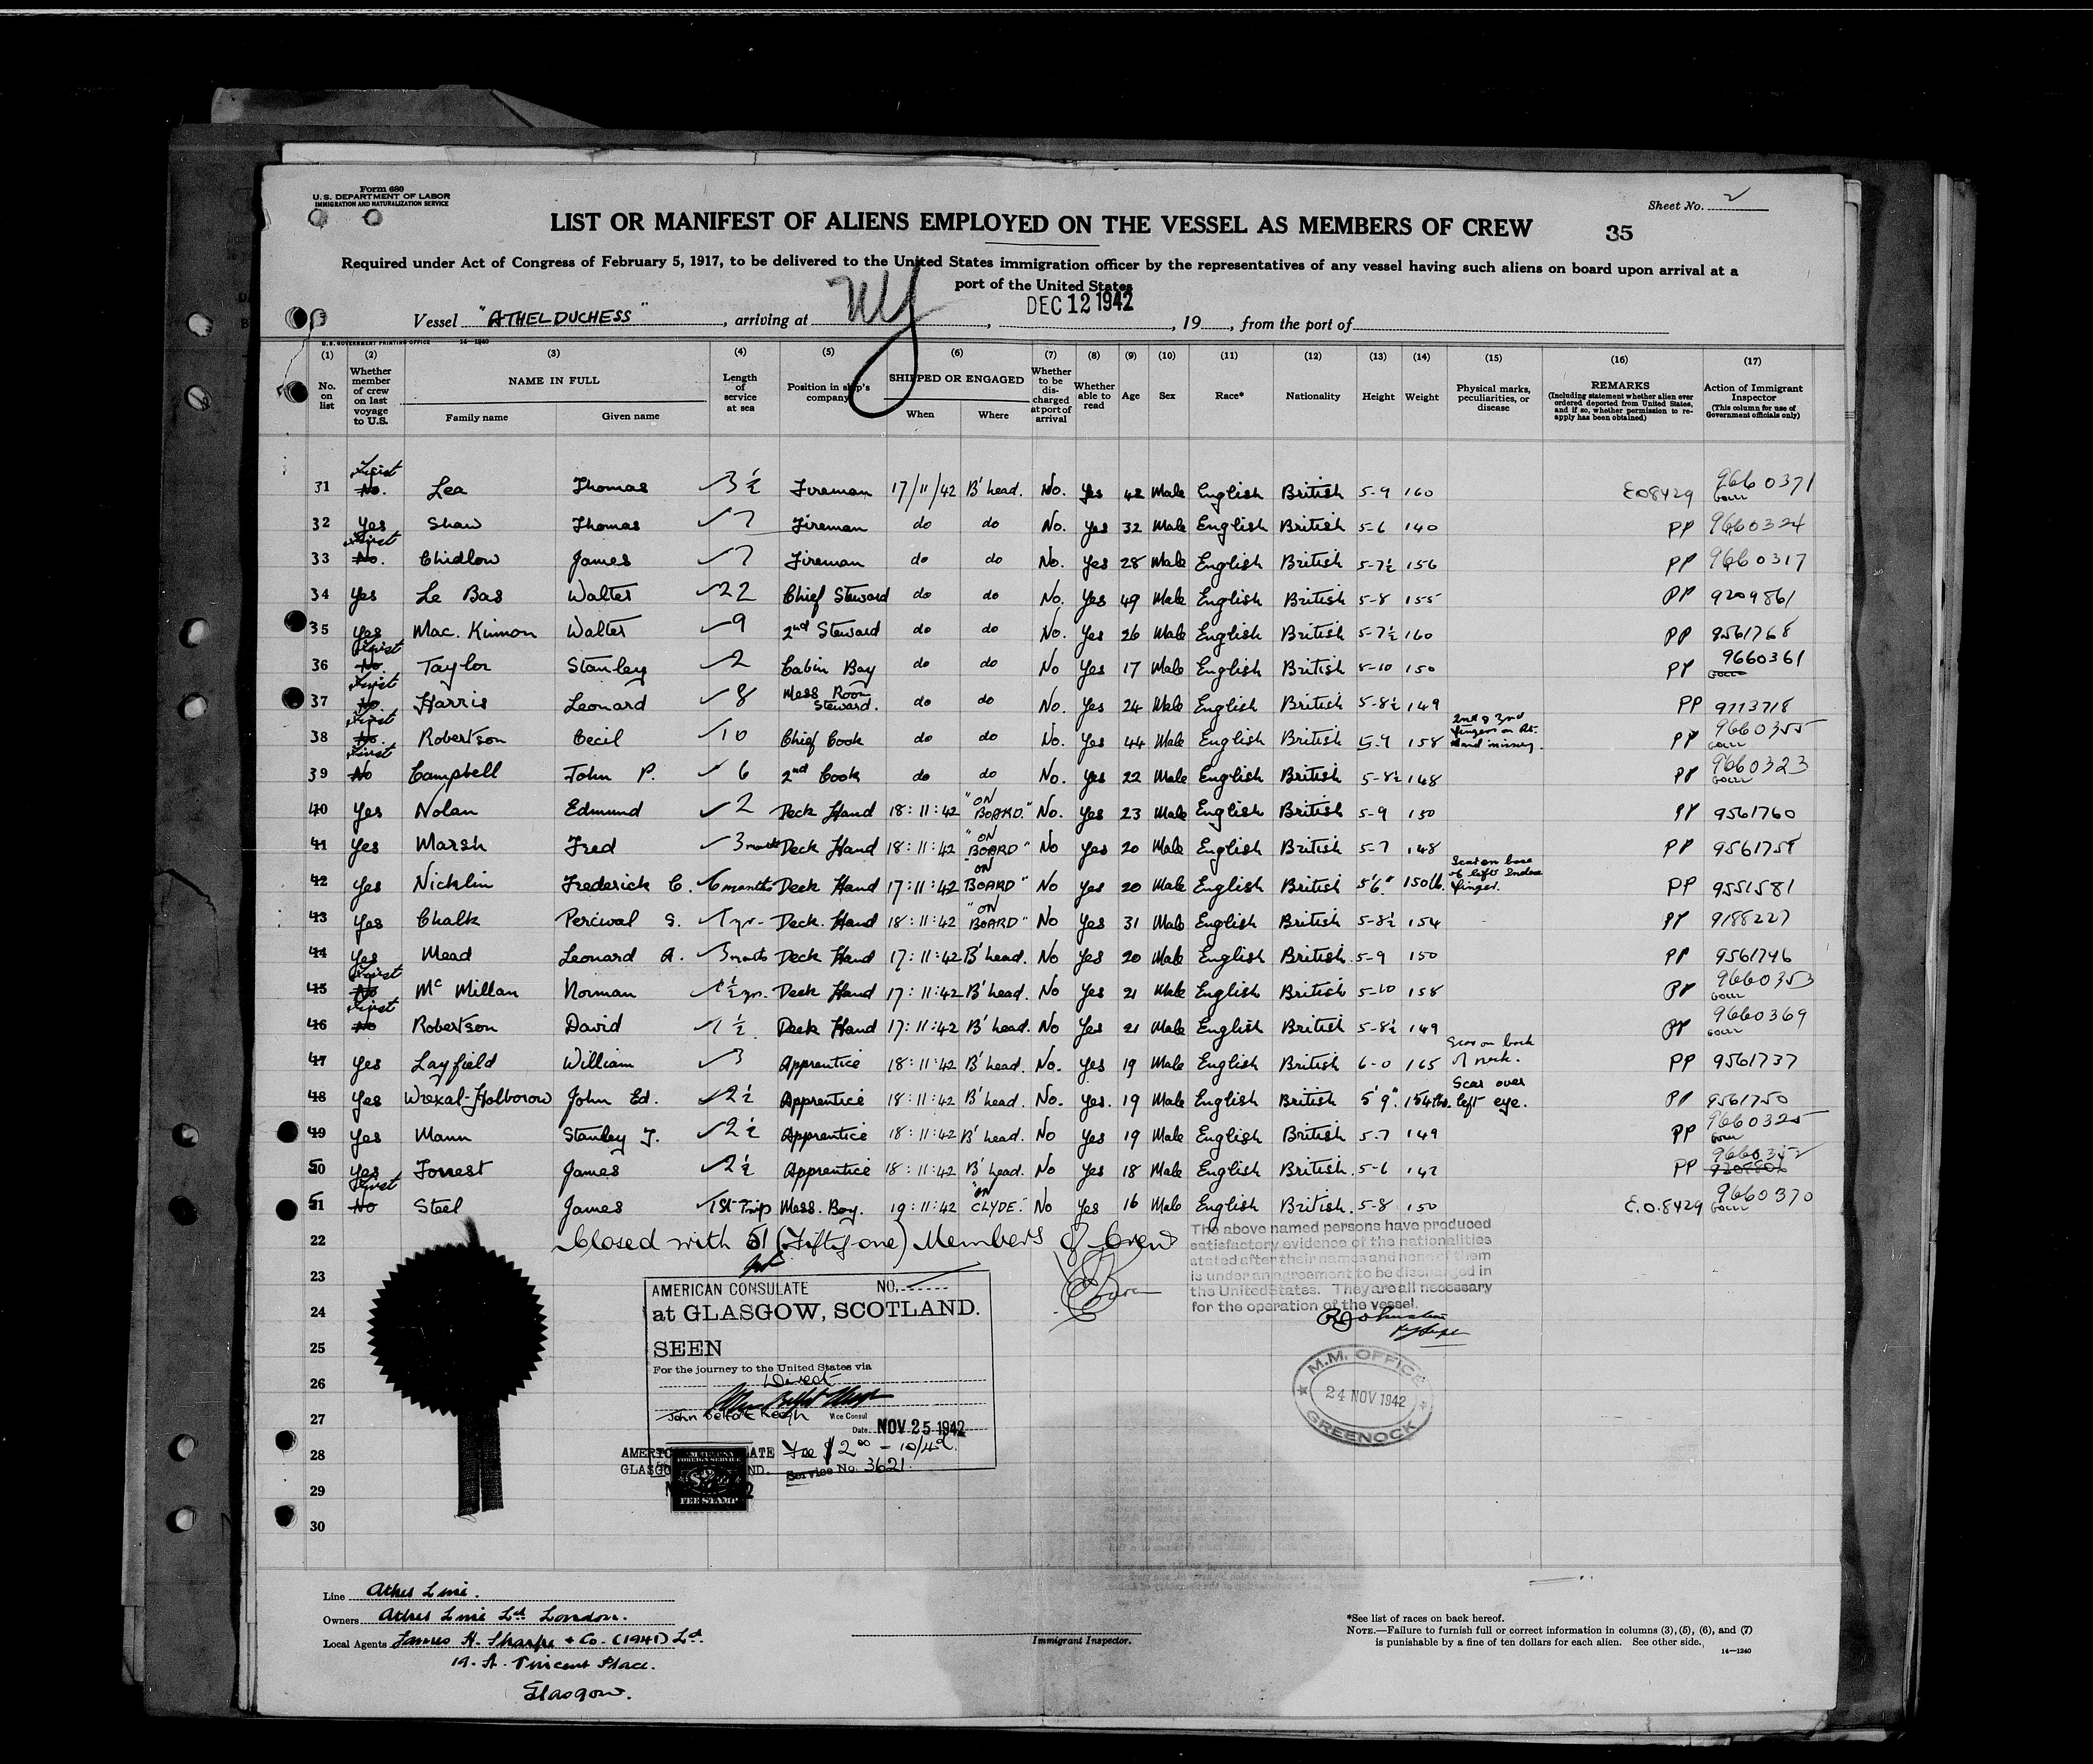 Form 680
U.S. DEPARTMENT OF LABOR
IMMIGRATION AND NATURALIZATION SERVICE
Sheet No. 2
LIST OR MANIFEST OF ALIENS EMPLOYED ON THE VESSEL AS MEMBERS OF CREW 35
Required under Act of Congress of February 5, 1917, to be delivered to the United States immigration officer by the representatives of any vessel having such aliens on board upon arrival at a
port of the United States
Vessel "ATHELDUCHESS", arriving at NY, DEC 12 1942, 19, from the port of
U.S. GOVERNMENT PRINTING OFFICE 14—1240
(1) (2) (3) (4) (5) (6) (7) (8) (9) (10) (11) (12) (13) (14) (15) (16) (17)
No. on list
Whether member of crew on last voyage to U.S.
NAME IN FULL
Family name Given name
Length of service at sea
Position in ship's company
SHIPPED OR ENGAGED
When Where
Whether to be discharged at port of arrival
Whether able to read
Age
Sex
Race*
Nationality
Height
Weight
Physical marks, peculiarities, or disease
REMARKS
(Including statement whether alien ever ordered deported from United States, and if so, whether permission to reapply has been obtained)
Action of Immigrant Inspector
(This column for use of Government officials only)
31 First No. Lea Thomas 3 ½ Fireman 17/11/42 B'head. No. Yes 42 Male English British 5-9 160 E08429 9660371
32 Yes Shaw Thomas 7 Fireman do do No. Yes 32 Male English British 5-6 140 PP 9660324
33 First No. Chidlow James 7 Fireman do do No. Yes 28 Male English British 5-7½ 156 PP 9660317
34 Yes Le Bas Walter 22 Chief Steward do do No. Yes 49 Male English British 5-8 155 PP 9209861
35 Yes Mac. Kinnon Walter 9 2nd Steward do do No. Yes 26 Male English British 5-7½ 160 PP 9561768
36 First No. Taylor Stanley 2 Cabin Boy do do No Yes 17 Male English British 5-10 150 PP 9660361
37 First No. Harris Leonard 8 Mess Room Steward. do do No. Yes 24 Male English British 5-8½ 149 PP 9773718
38 First No. Robertson Cecil 10 Chief Cook do do No. Yes 44 Male English British 5-9 158 2nd & 3rd fingers on Rt. hand missing. PP 9660355
39 First No Campbell John P. 6 2nd Cook do do No. Yes 22 Male English British 5-8½ 148 PP 9660323
40 Yes Nolan Edmund 2 Deck Hand 18:11:42 "ON BOARD." No. Yes 23 Male English British 5-9 150 PP 9561760
41 Yes Marsh Fred 3 months Deck Hand 18:11:42 "ON BOARD" No Yes 20 Male English British 5-7 148 PP 9561758
42 Yes Nicklin Frederick C. 6 months Deck Hand 17:11:42 ON BOARD" No Yes 20 Male English British 5'6" 150lb. Scar on base of left index finger. PP 9551581
43 Yes Chalk Percival S. 1 yr. Deck. Hand 18:11:42 "ON BOARD" No Yes 31 Male English British 5-8½ 154 PP 9188227
44 Yes Mead Leonard A. 3 months Deck Hand 17:11:42 B'head. No Yes 20 Male English British. 5-9 150 PP 9561746
45 First No Mc Millan Norman 1½ yr. Deck Hand 17:11:42 B'head. No Yes 21 Male English British 5-10 158 PP 9660353
46 First No Robertson David 1 ½ Deck Hand 17:11:42 B'head. No Yes 21 Male English British 5-8½ 149 PP 9660369
47 Yes Layfield William 3 Apprentice 18:11:42 B'head. No. Yes 19 Male English British 6-0 165 Scar on back of neck. PP 9561737
48 Yes Wrexal-Holborow John Ed. 2½ Apprentice 18:11:42 B'head. No. Yes. 19 Male English British 5'9". 154lbs. Scar over left eye. PP 9561750
49 Yes Mann Stanley J. 2½ Apprentice 18:11:42 B'head. No Yes 19 Male English British. 5-7 149 PP 9660325
50 Yes Forrest James 2½ Apprentice 18:11:42 B'head. No Yes 18 Male English British. 5-6 142 PP 9660352
51 First No Steel James 1st Trip Mess. Boy. 19:11:42 "ON CLYDE." No Yes 16 Male English British. 5-8 150 E.O.8429 9660370
22 Closed with 51 (Fifty-one) Members of Crew
The above named persons have produced
satisfactory evidence of the nationalities
stated after their names and none of them
is under an agreement to be discharged in
the United States. They are all necessary
for the operation of the vessel.
23
24
25
26
27
28
29
30
AMERICAN CONSULATE NO.
at GLASGOW, SCOTLAND.
SEEN
For the journey to the United States via
Direct
John Belfort Keogh Vice Consul
Date NOV 25 1942
Fee $2.00 — 10/4d.
Service No. 3621.
FOREIGN SERVICE
FEE STAMP
M.M. OFFICE
24 NOV 1942
GREENOCK
Line Athel Line.
Owners Athel Line Ld London.
Local Agents James H. Sharpe & Co. (1941) Ld.
19. St. Vincent Place.
Glasgow.
Immigrant Inspector.
*See list of races on back hereof.
NOTE.—Failure to furnish full or correct information in columns (3), (5), (6), and (7)
is punishable by a fine of ten dollars for each alien. See other side.
14—1240